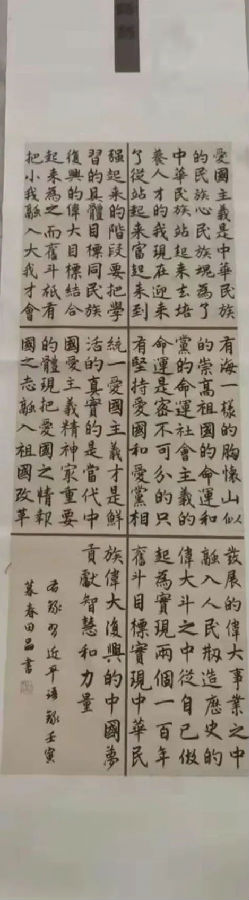 愛國主義是中華民族
的民族心民族魂為了
中華民族站起來去培
養人才的我現在迎來
了從站起來富起來到
强起來的階段要把學
習的具體目標同民族
復興的偉大目標結合
起來為之而奮斗祇有
把小我融入大我才會
有海一樣的胸懷山似
的崇高祖國的命運和
黨的命運社會主義的
命運是密不可分的只
有堅持愛國和愛黨相
統一愛國主義才是鮮
活的真實的是當代中
國愛主義精神家重要
的體現把愛國之情報
國之志融入祖國改革
發展的偉大事業之中
融入人民剏造歷史的
偉大斗之中從自己做
起為實現兩個一百年
奮斗目標實現中華民
族偉大復興的中國夢
貢獻智慧和力量
右錄習近平語錄壬寅
暮春田品書